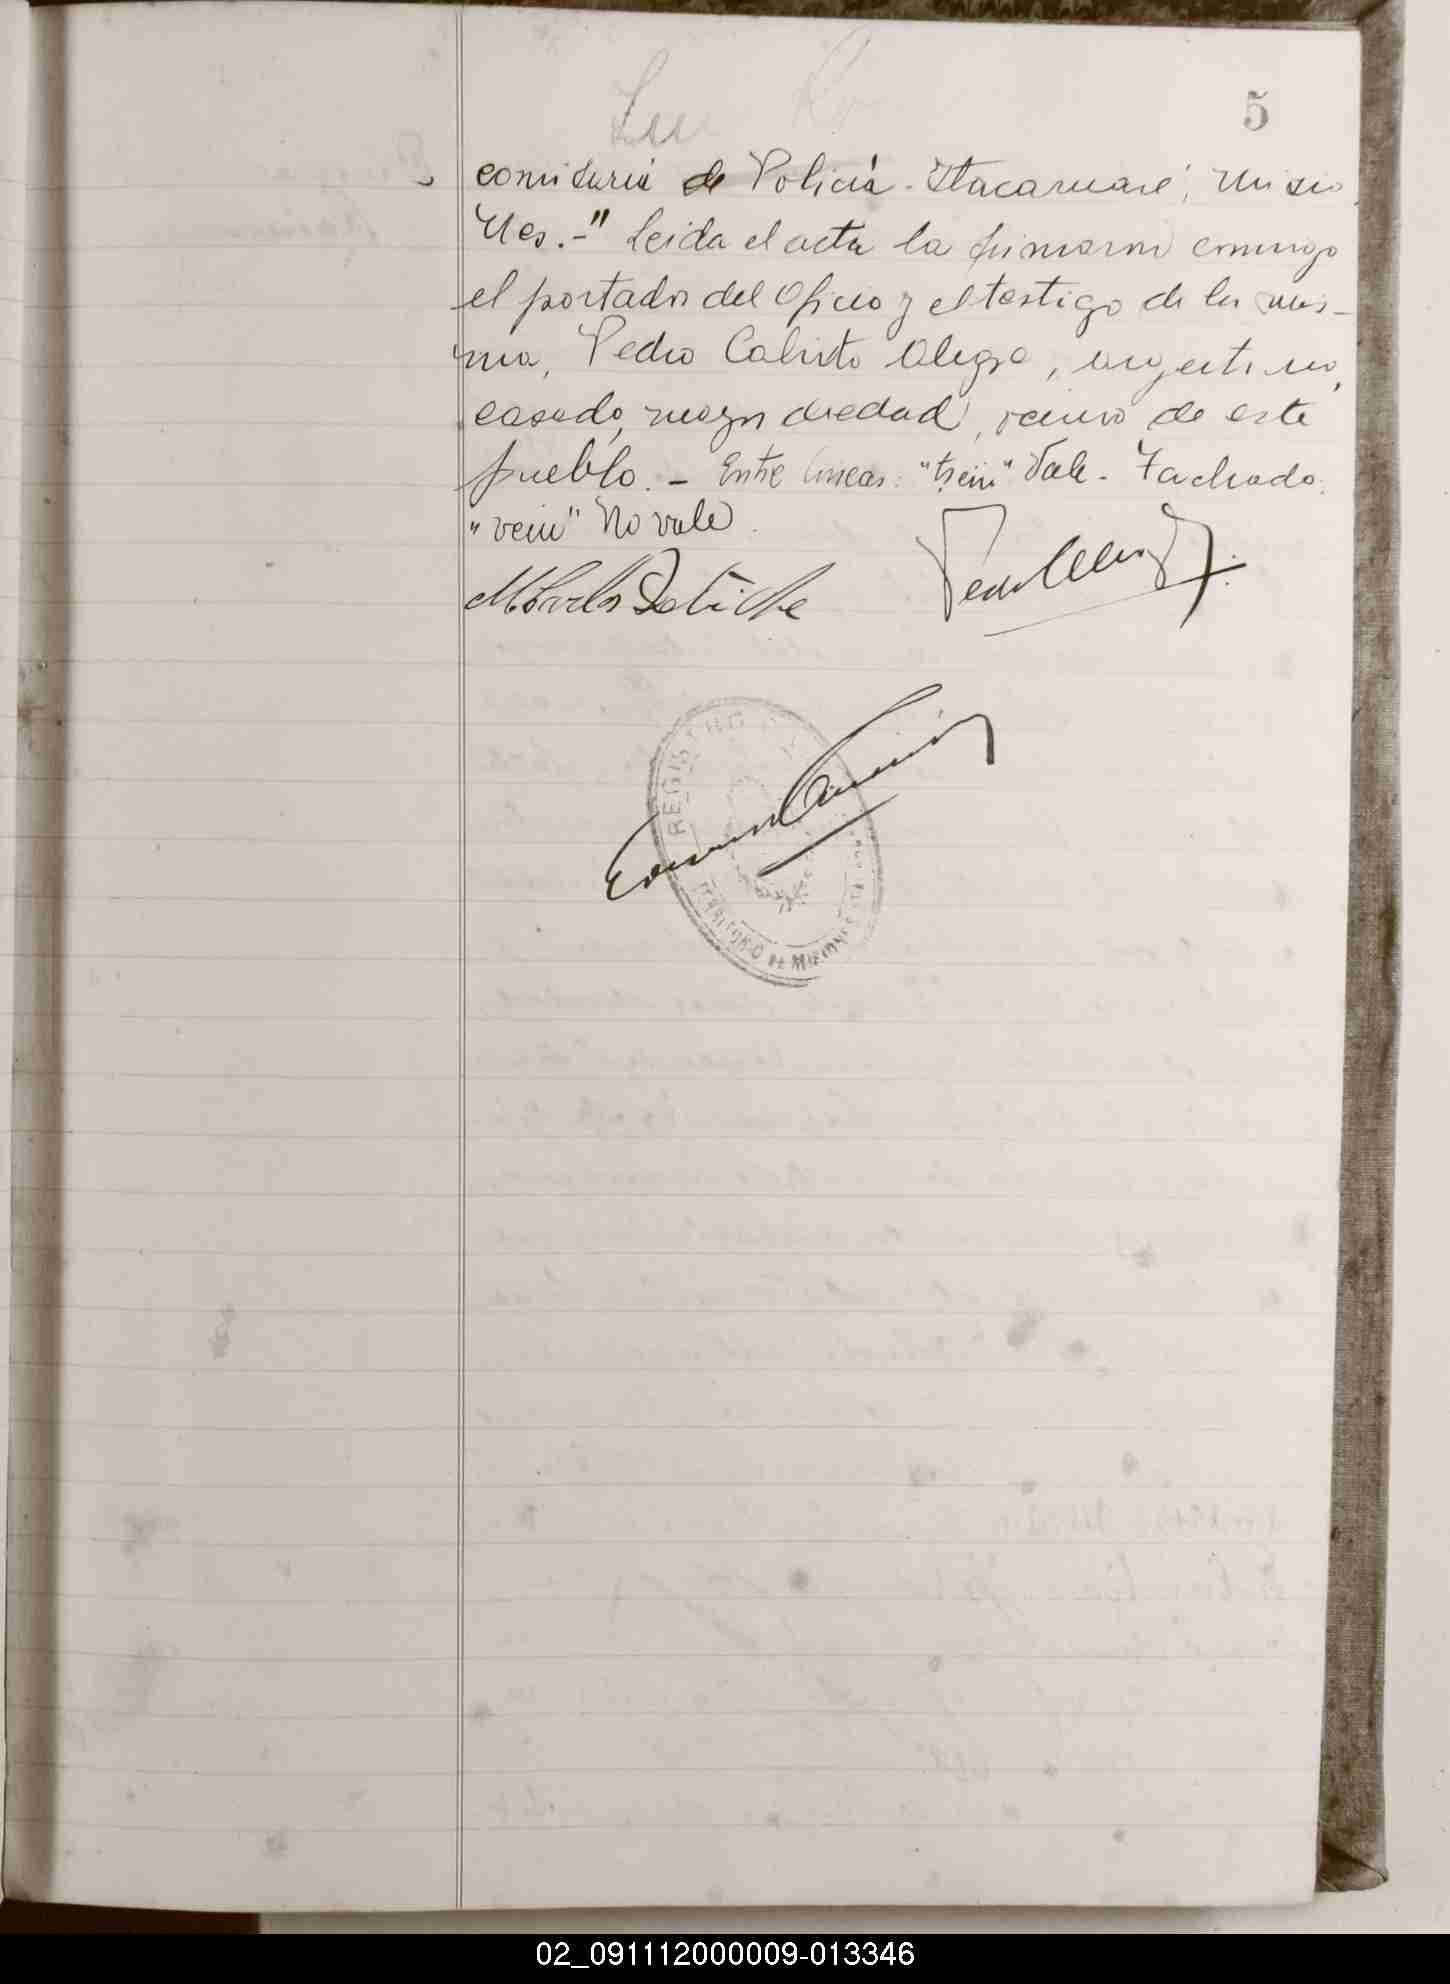 5
comisaria de Policia - Itacaruaré, Misio
nes.-" Leida el acta la firmaron conmigo
el portador del Oficio y el testigo de la mis-
ma, Pedro Calisto Alegre, argentino,
casado, mayor de edad, vecino de este
pueblo. - Entre lineas: "trein" Vale - Tachado:
"vein" No vale.
REGISTRO
TERRITORIO DE MISIONES
02_091112000009-013346